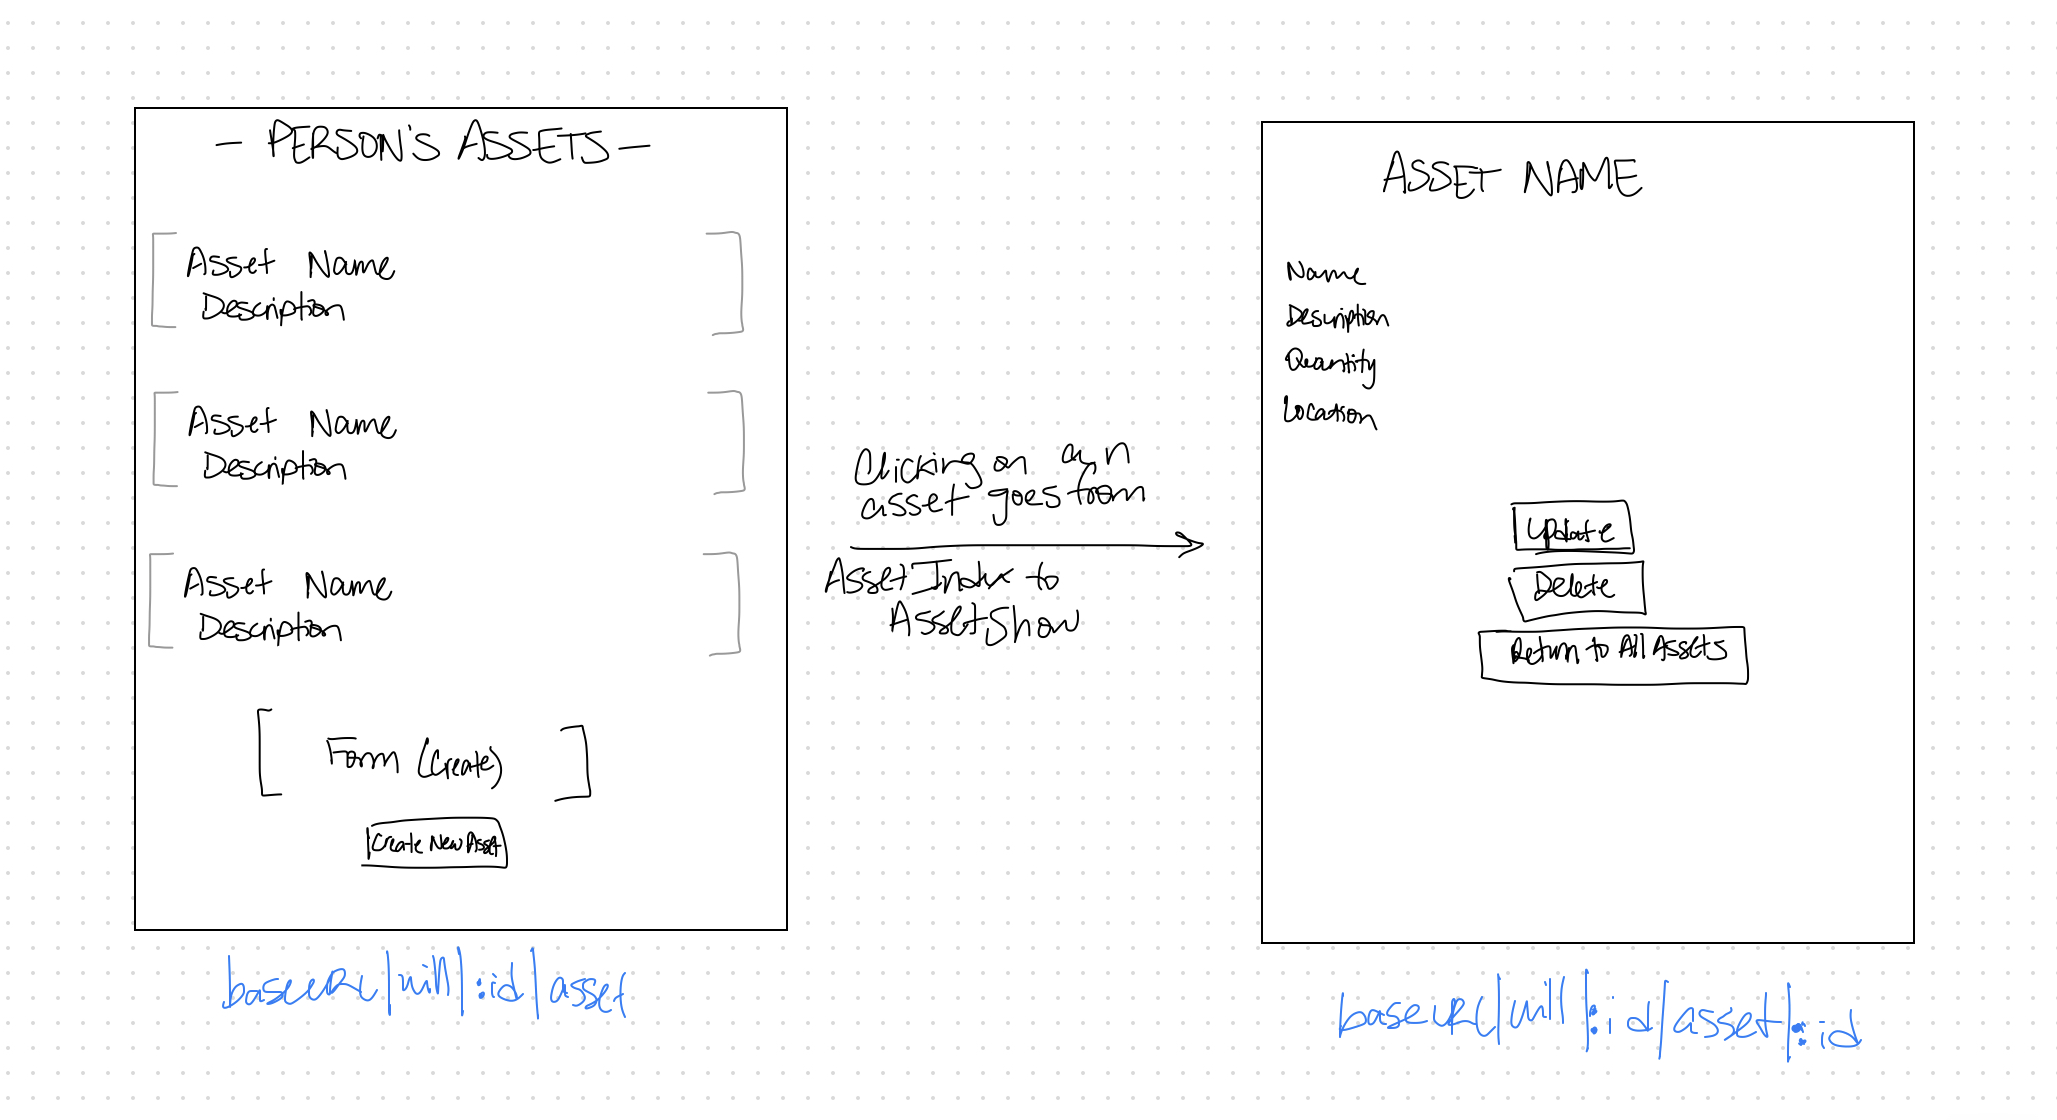 - PERSON'S ASSETS -
Asset Name
Description
Asset Name
Description
Asset Name
Description
Form (Create)
Create New Asset
baseURL/will/:id/asset
Clicking on an
asset goes from
AssetIndex to
AssetShow
ASSET NAME
Name
Description
Quantity
Location
Update
Delete
Return to All Assets
baseURL/will/:id/asset/:id